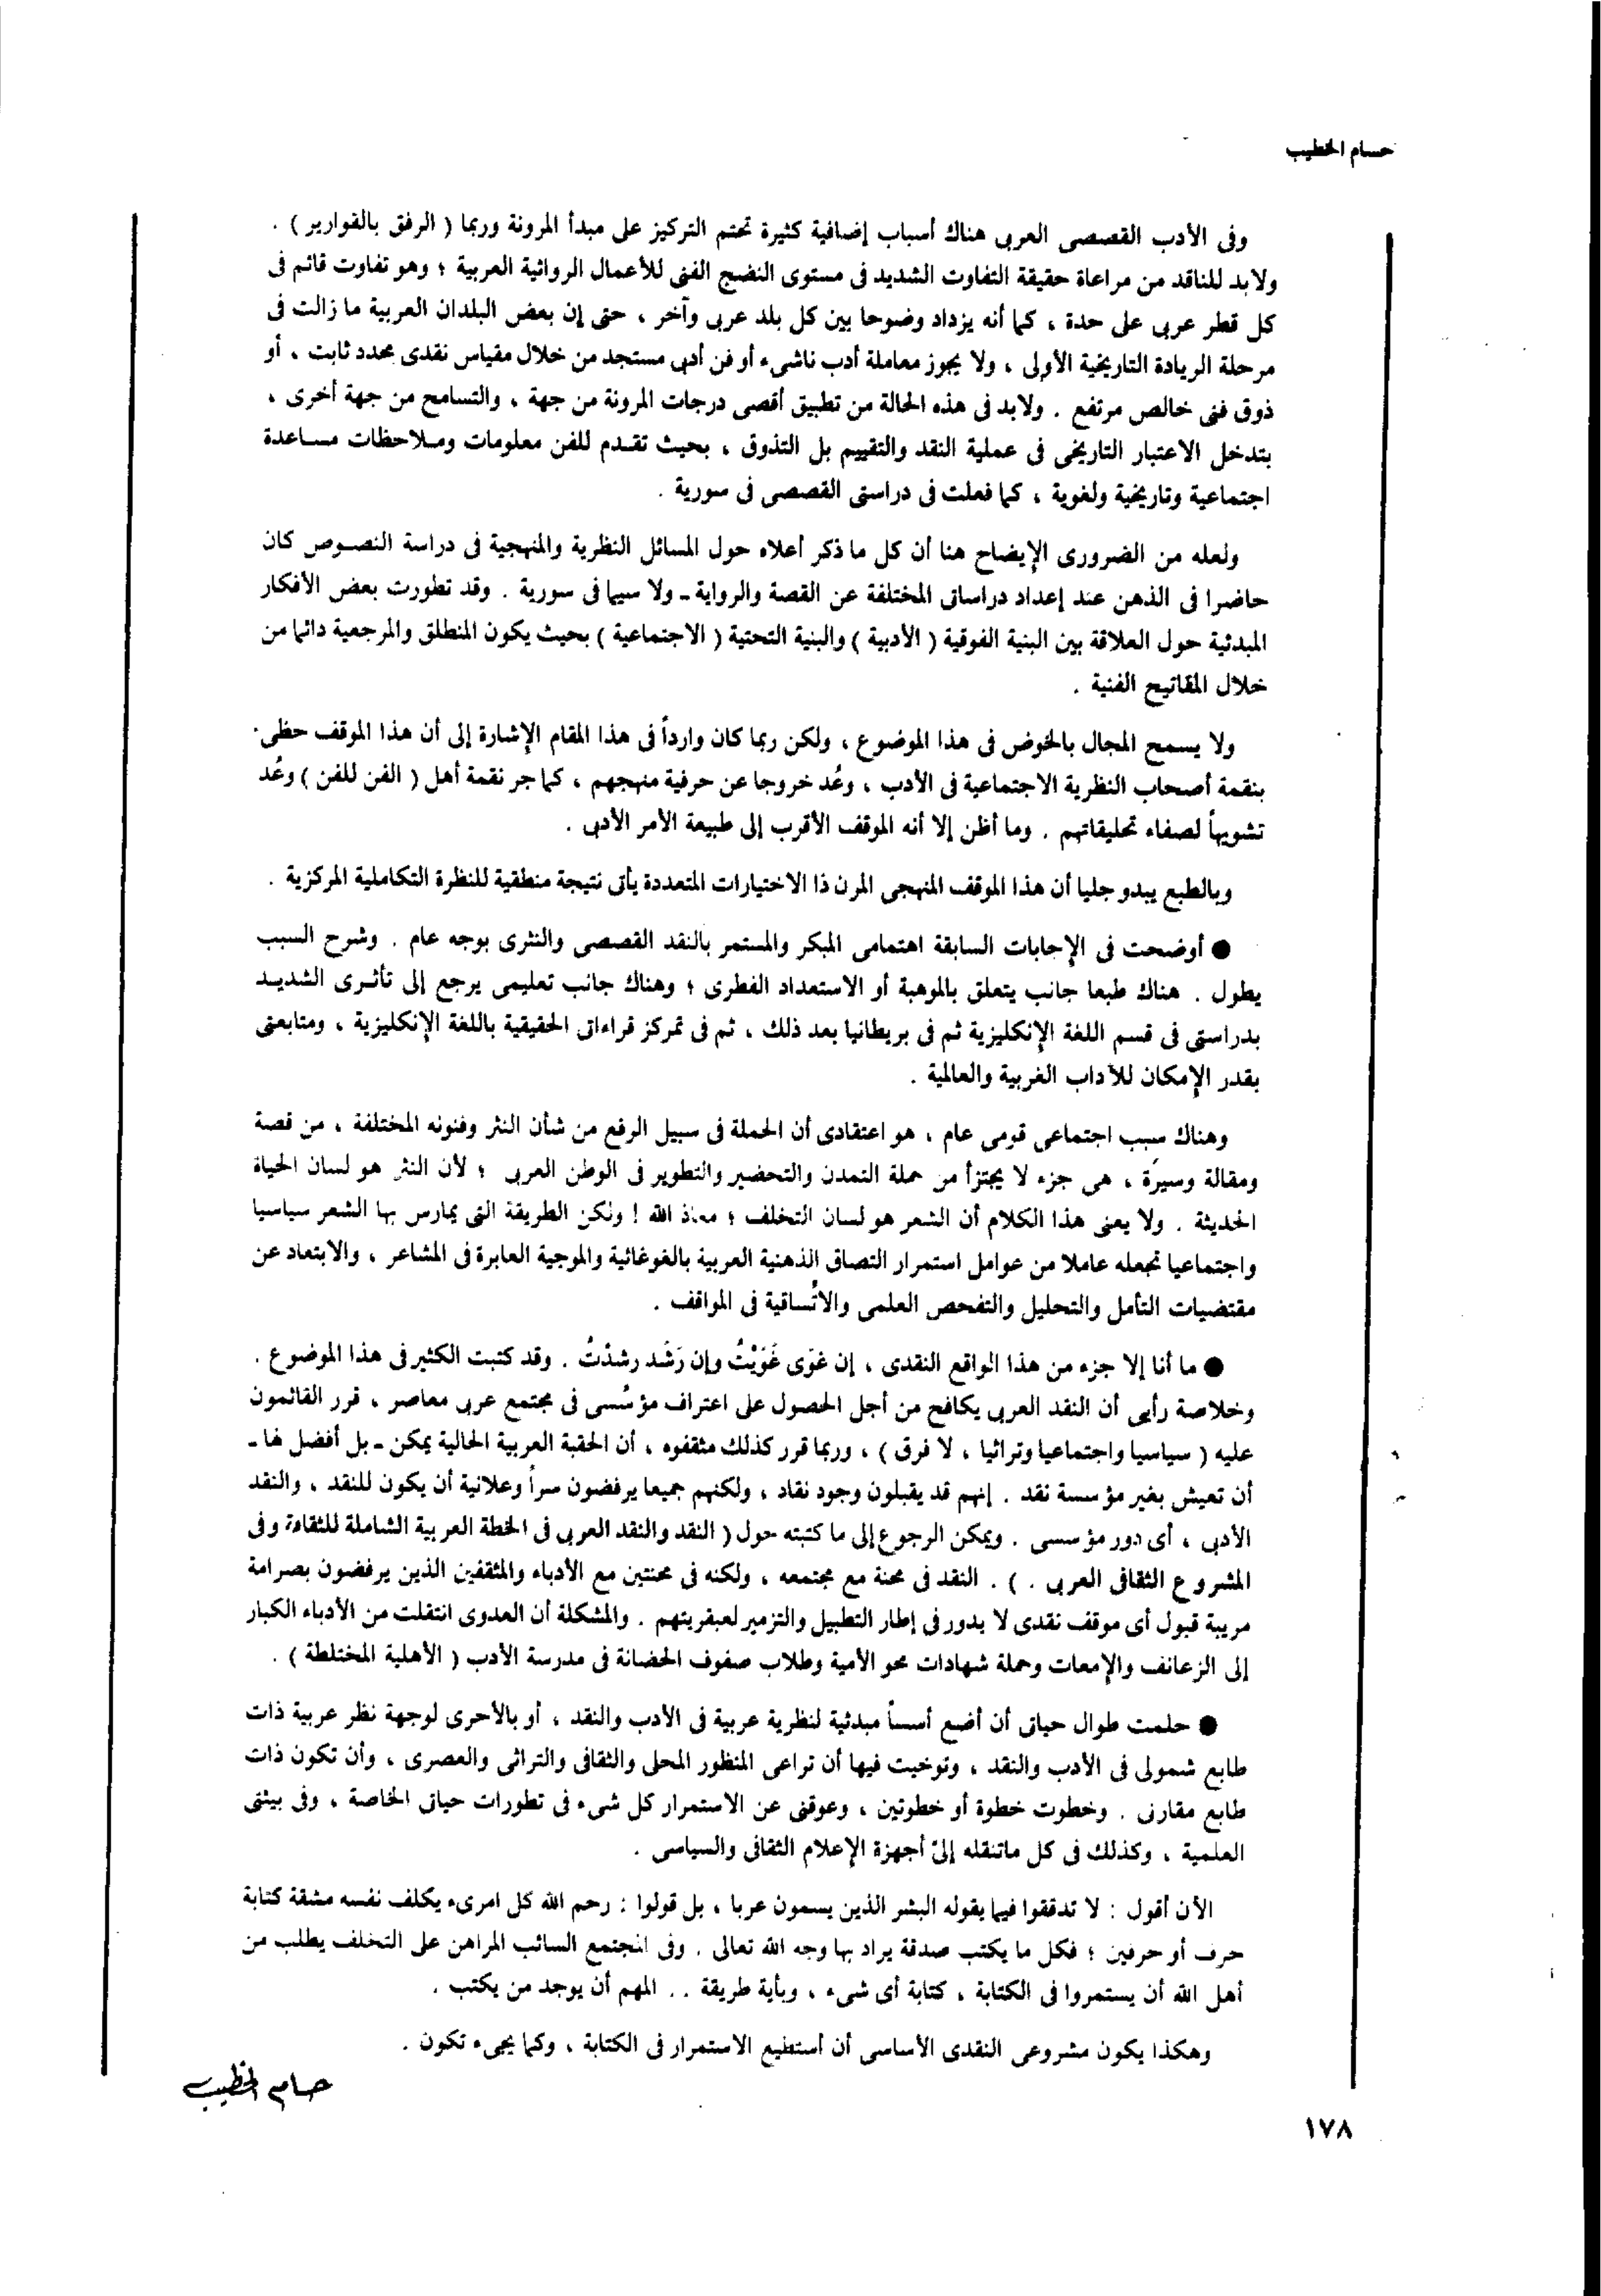 حسام الخطيب
وفى الأدب القصصى العربى هناك أسباب إضافية كثيرة تحتم التركيز على مبدأ المرونة وربما ( الرفق بالقوارير ) .
ولابد للناقد من مراعاة حقيقة التفاوت الشديد فى مستوى النضج الفنى للأعمال الروائية العربية ؛ وهو تفاوت قائم فى
كل قطر عربى على حدة ، كما أنه يزداد وضوحا بين كل بلد عربى وآخر ، حتى إن بعض البلدان العربية ما زالت فى
مرحلة الريادة التاريخية الأولى ، ولا يجوز معاملة أدب ناشىء أو فن أدبى مستجد من خلال مقياس نقدى محدد ثابت ، أو
ذوق فنى خالص مرتفع . ولابد فى هذه الحالة من تطبيق أقصى درجات المرونة من جهة ، والتسامح من جهة أخرى ،
بتدخل الاعتبار التاريخى فى عملية النقد والتقييم بل التذوق ، بحيث تقدم للفن معلومات وملاحظات مساعدة
اجتماعية وتاريخية ولغوية ، كما فعلت فى دراستى القصصى فى سورية .
ولعله من الضرورى الإيضاح هنا أن كل ما ذكر أعلاه حول المسائل النظرية والمنهجية فى دراسة النصوص كان
حاضرا فى الذهن عند إعداد دراساتى المختلفة عن القصة والرواية ـ ولا سيما فى سورية . وقد تطورت بعض الأفكار
المبدئية حول العلاقة بين البنية الفوقية ( الأدبية ) والبنية التحتية ( الاجتماعية ) بحيث يكون المنطلق والمرجعية دائما من
خلال المفاتيح الفنية .
ولا يسمح المجال بالخوض فى هذا الموضوع ، ولكن ربما كان وارداً فى هذا المقام الإشارة إلى أن هذا الموقف حظى
بنقمة أصحاب النظرية الاجتماعية فى الأدب ، وعُد خروجا عن حرفية منهجهم ، كما جر نقمة أهل ( الفن للفن ) وعُد
تشويهاً لصفاء تحليقاتهم . وما أظن إلا أنه الموقف الأقرب إلى طبيعة الأمر الأدبى .
وبالطبع يبدو جليا أن هذا الموقف المنهجى المرن ذا الاختيارات المتعددة يأتى نتيجة منطقية للنظرة التكاملية المركزية .
● أوضحت فى الإجابات السابقة اهتمامى المبكر والمستمر بالنقد القصصى والنثرى بوجه عام . وشرح السبب
يطول . هناك طبعا جانب يتعلق بالموهبة أو الاستعداد الفطرى ؛ وهناك جانب تعليمى يرجع إلى تأثرى الشديد
بدراستى فى قسم اللغة الإنكليزية ثم فى بريطانيا بعد ذلك ، ثم فى تمركز قراءاتى الحقيقية باللغة الإنكليزية ، ومتابعتى
بقدر الإمكان للآداب الغربية والعالمية .
وهناك سبب اجتماعى قومى عام ، هو اعتقادى أن الحملة فى سبيل الرفع من شأن النثر وفنونه المختلفة ، من قصة
ومقالة وسيرَة ، هى جزء لا يجتزأ من حملة التمدن والتحضير والتطوير فى الوطن العربى ؛ لأن النثر هو لسان الحياة
الحديثة . ولا يعنى هذا الكلام أن الشعر هو لسان التخلف ؛ معاذ الله ! ولكن الطريقة التى يمارس بها الشعر سياسيا
واجتماعيا تجعله عاملا من عوامل استمرار التصاق الذهنية العربية بالغوغائية والموجية العابرة فى المشاعر ، والابتعاد عن
مقتضيات التأمل والتحليل والتفحص العلمى والاتُساقية فى المواقف .
● ما أنا إلا جزء من هذا الواقع النقدى ، إن غوَى غَوَيْتُ وإن رَشَد رشدْتُ . وقد كتبت الكثير فى هذا الموضوع .
وخلاصة رأيى أن النقد العربى يكافح من أجل الحصول على اعتراف مؤسُسى فى مجتمع عربى معاصر ، قرر القائمون
عليه ( سياسيا واجتماعيا وتراثيا ، لا فرق ) ، وربما قرر كذلك مثقفوه ، أن الحقبة العربية الحالية يمكن ـ بل أفضل لها ـ
أن تعيش بغير مؤسسة نقد . إنهم قد يقبلون وجود نقاد ، ولكنهم جميعا يرفضون سراً وعلانية أن يكون للنقد ، والنقد
الأدبى ، أى دور مؤسسى . ويمكن الرجوع إلى ما كتبته حول ( النقد والنقد العربى فى الخطة العربية الشاملة للثقافة وفى
المشروع الثقافى العربى . ) . النقد فى محنة مع مجتمعه ، ولكنه فى محنتين مع الأدباء والمثقفين الذين يرفضون بصرامة
مريبة قبول أى موقف نقدى لا يدور فى إطار التطبيل والتزمير لعبقريتهم . والمشكلة أن العدوى انتقلت من الأدباء الكبار
إلى الزعانف والإمعات وحملة شهادات محو الأمية وطلاب صفوف الحضانة فى مدرسة الأدب ( الأهلية المختلطة ) .
● حلمت طوال حياتى أن أضع أسساً مبدئية لنظرية عربية فى الأدب والنقد ، أو بالأحرى لوجهة نظر عربية ذات
طابع شمولى فى الأدب والنقد ، وتوخيت فيها أن تراعى المنظور المحلى والثقافى والتراثى والعصرى ، وأن تكون ذات
طابع مقارنى . وخطوت خطوة أو خطوتين ، وعوقنى عن الاستمرار كل شىء فى تطورات حياتى الخاصة ، وفى بيئتى
العلمية ، وكذلك فى كل ماتنقله إلىّ أجهزة الإعلام الثقافى والسياسى .
الآن أقول : لا تدققوا فيما يقوله البشر الذين يسمون عربا ، بل قولوا : رحم الله كل امرىء يكلف نفسه مشقة كتابة
حرف أو حرفين ؛ فكل ما يكتب صدقة يراد بها وجه الله تعالى . وفى المجتمع السائب المراهن على التخلف يطلب من
أهل الله أن يستمروا فى الكتابة ، كتابة أى شىء ، وبأية طريقة . . المهم أن يوجد من يكتب .
وهكذا يكون مشروعى النقدى الأساسى أن أستطيع الاستمرار فى الكتابة ، وكما يجىء تكون .
حسام الخطيب
١٧٨